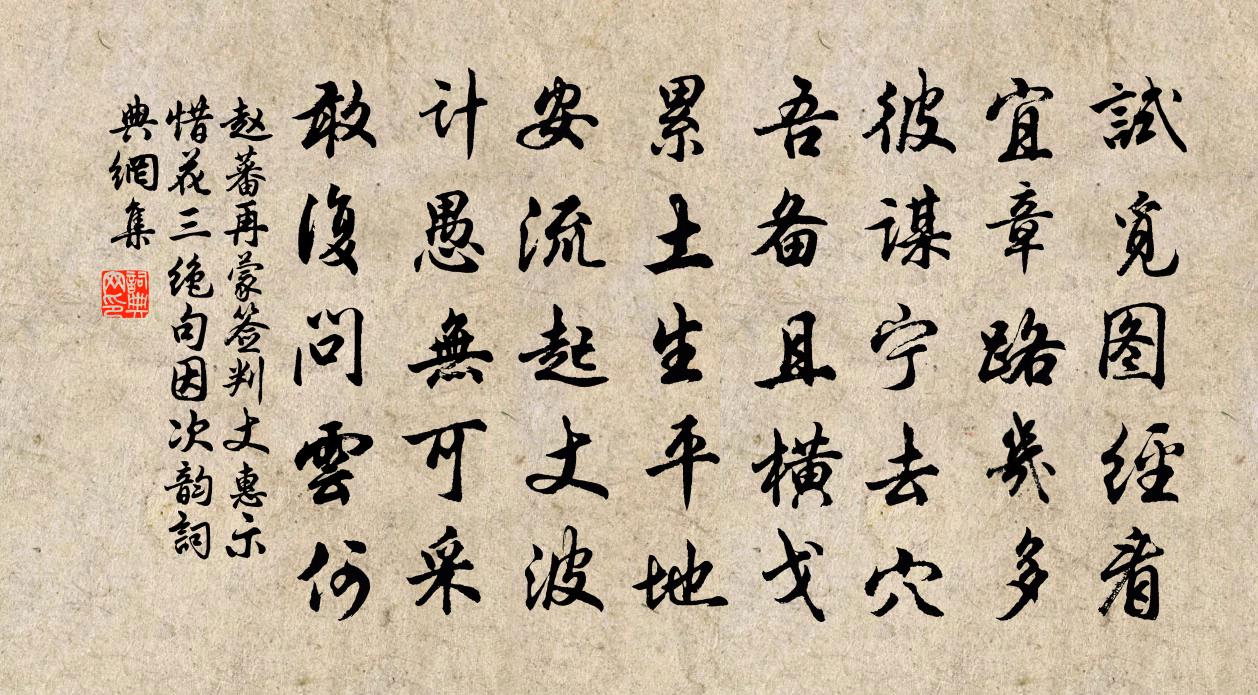 試覓图經看
宜章路幾多
彼謀宁去穴
吾备且橫戈
累土生平地
安流起丈波
计愚無可采
敢復問雲何
赵蕃再蒙签判丈惠示
惜花三绝句因次韵詞
典網集
詞典网印